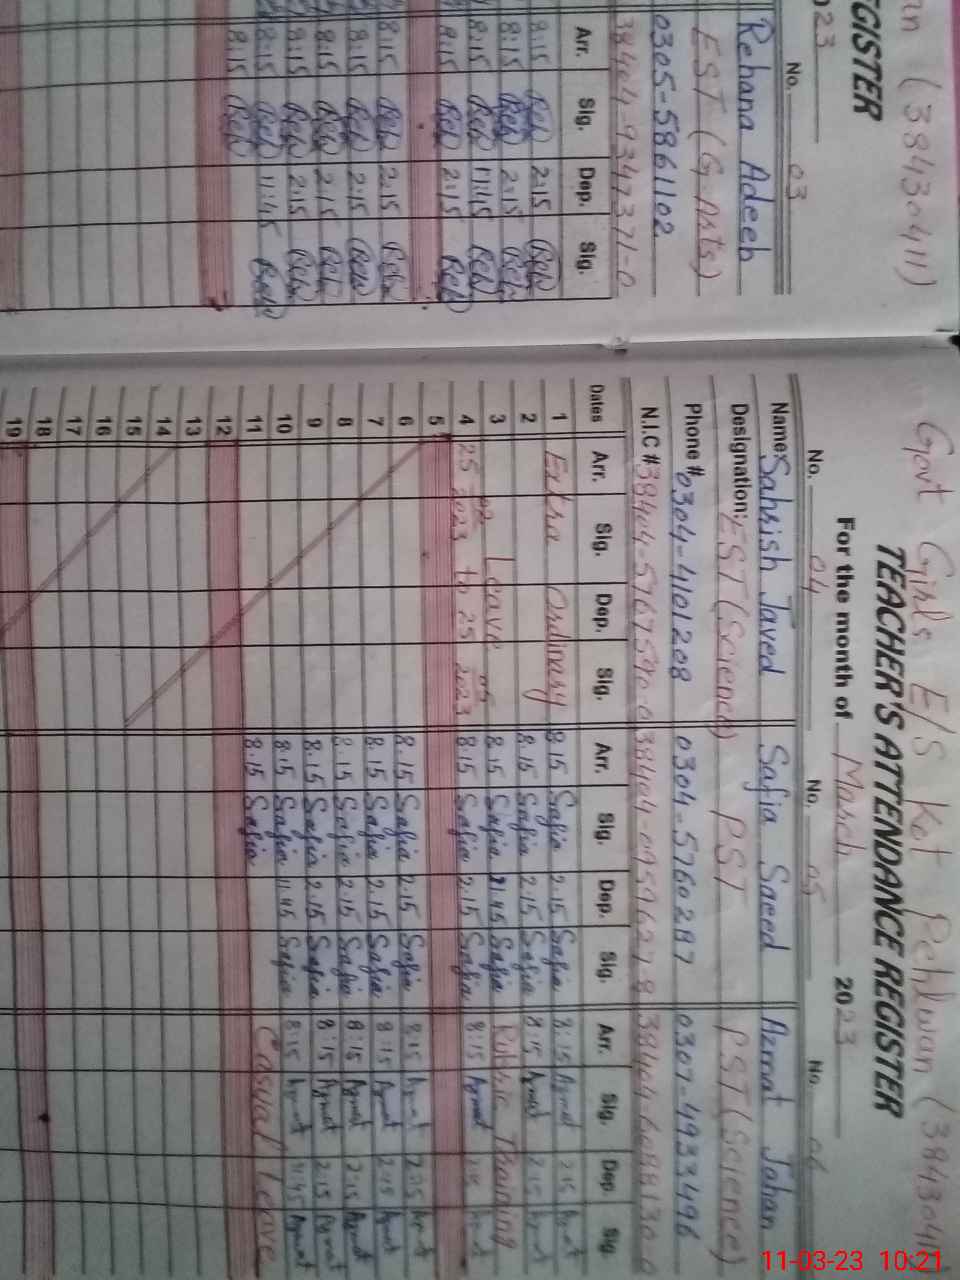 Govt Girls E/S Kot Pehlwan (3843041
TEACHER'S ATTENDANCE REGISTER
For the month of March 2023
No. 04 No. 05 No. 06
Name: Sahrish Javed Safia Saeed Azmat Jahan
Designation: EST (Science) PST PST (Science)
Phone # 0304-4101208 0304-5760287 0307-4933496
N.I.C # 38404-5767590-0 38404-0959627-8 38404-6098130-0
Dates Arr. Sig. Dep. Sig. Arr. Sig. Dep. Sig. Arr. Sig. Dep. Sig.
1 Extra Ordinary 8.15 Safia 2.15 Safia 8:15 Azmat 2:15 Azmat
2 8.15 Safia 2.15 Safia 8:15 Azmat 2:15 Azmat
3 Leave 8.15 Safia 11.45 Safia Public Training
4 25-02-2023 to 25-05-2023 8.15 Safia 2.15 Safia 8:15 Azmat
5
6 8.15 Safia 2.15 Safia 8:15 Azmat 2:15 Azmat
7 8.15 Safia 2.15 Safia 8:15 Azmat 2:15 Azmat
8 8.15 Safia 2.15 Safia 8:15 Azmat 2:15 Azmat
9 8.15 Safia 2.15 Safia 8:15 Azmat 2:15 Azmat
10 8.15 Safia 11.45 Safia 8:15 Azmat 11:45 Azmat
11 8.15 Safia Casual Leave
12
13
14
15
16
17
18
19
(38430411)
EGISTER
023
No. 03
Rehana Adeeb
EST (G-Arts)
0305-5861102
38404-9347371-0
Arr. Sig. Dep. Sig.
8:15 Reh 2:15 Reh
8:15 Reh 2:15 Reh
8:15 Reh 11:45 Reh
8:15 Reh 2:15 Reh
8:15 Reh 2:15 Reh
8:15 Reh 2:15 Reh
8:15 Reh 2:15 Reh
8:15 Reh 2:15 Reh
8:15 Reh 11:45 Reh
8:15 Reh
11-03-23 10:21